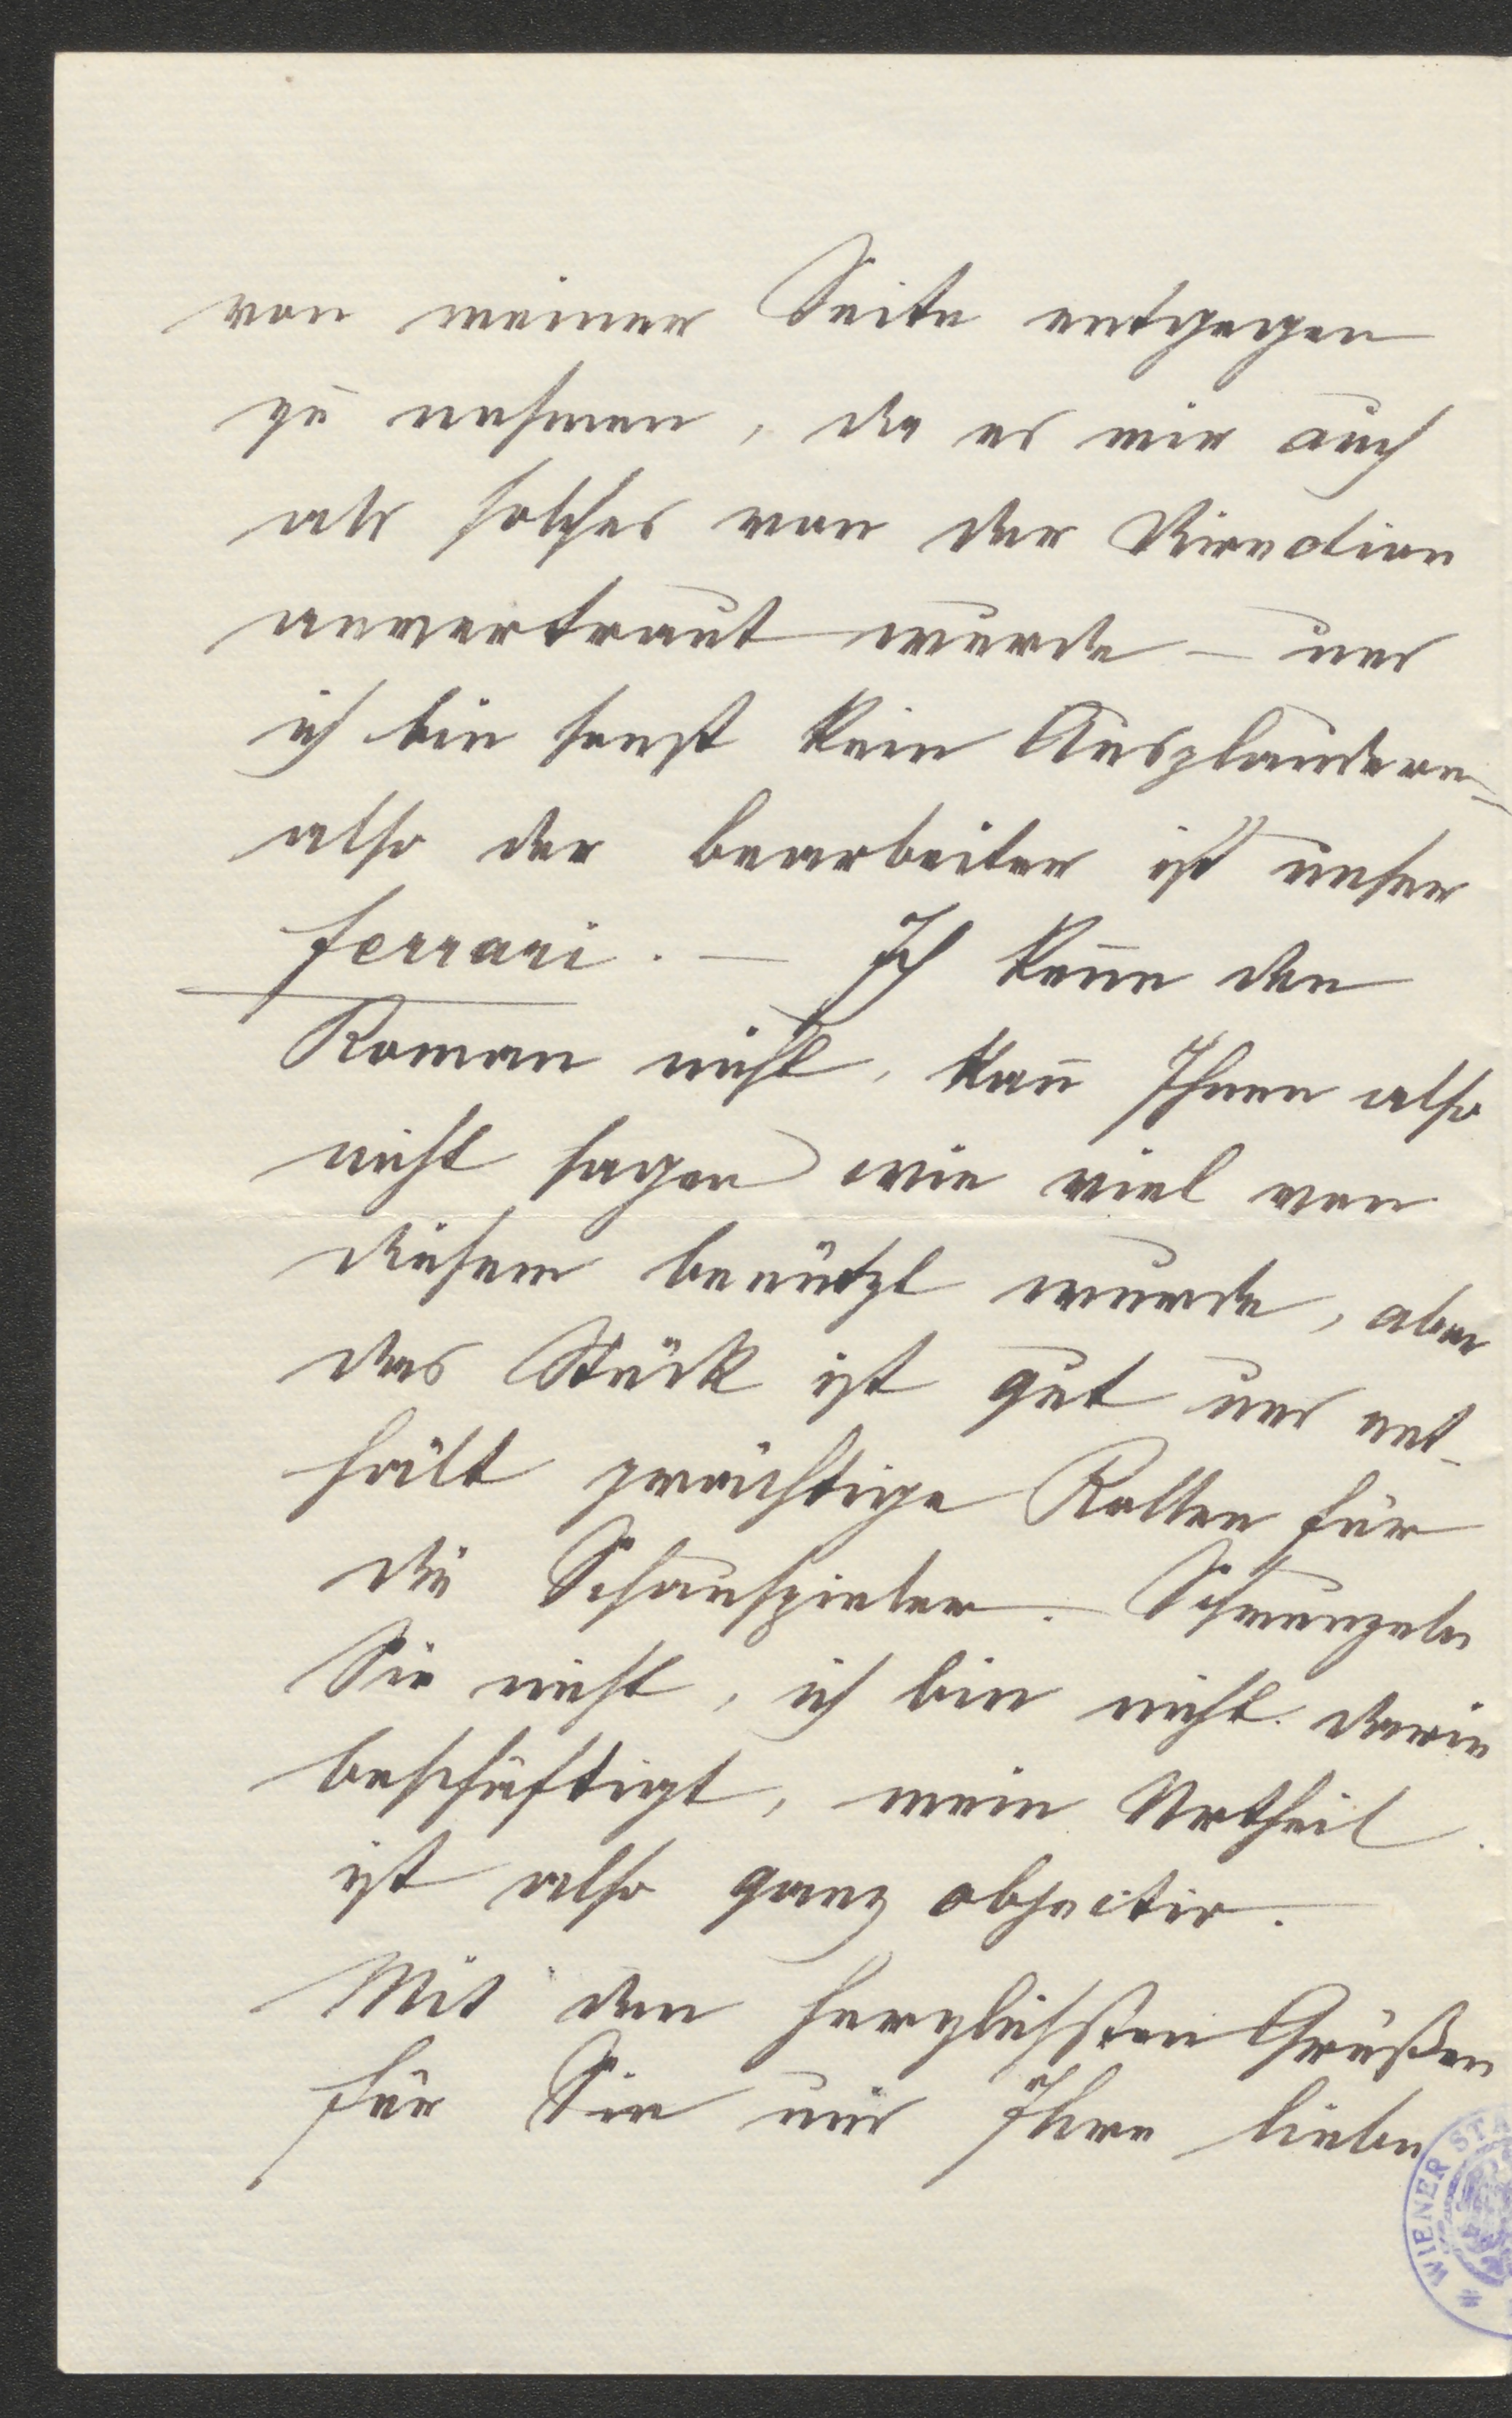 von meiner Seite entgegen
zu nehmen, da es mir auch
als solches von der Direction
anvertraut wurde – und
ich bin sonst kein Ausplauderer –
also der Bearbeiter ist unser
Ferrari. – Ich kenne den
Roman nicht, kann Ihnen also
nicht sagen wie viel von
diesem benützt wurde, aber
das Stück ist gut und ent-
hält prächtige Rollen für
die Schauspieler. Schmunzeln
Sie nicht, ich bin nicht darin
beschäftigt, mein Urtheil
ist also ganz objectiv.
Mit den herzlichsten Grüßen
für Sie und Ihre liebe
WIENER STA